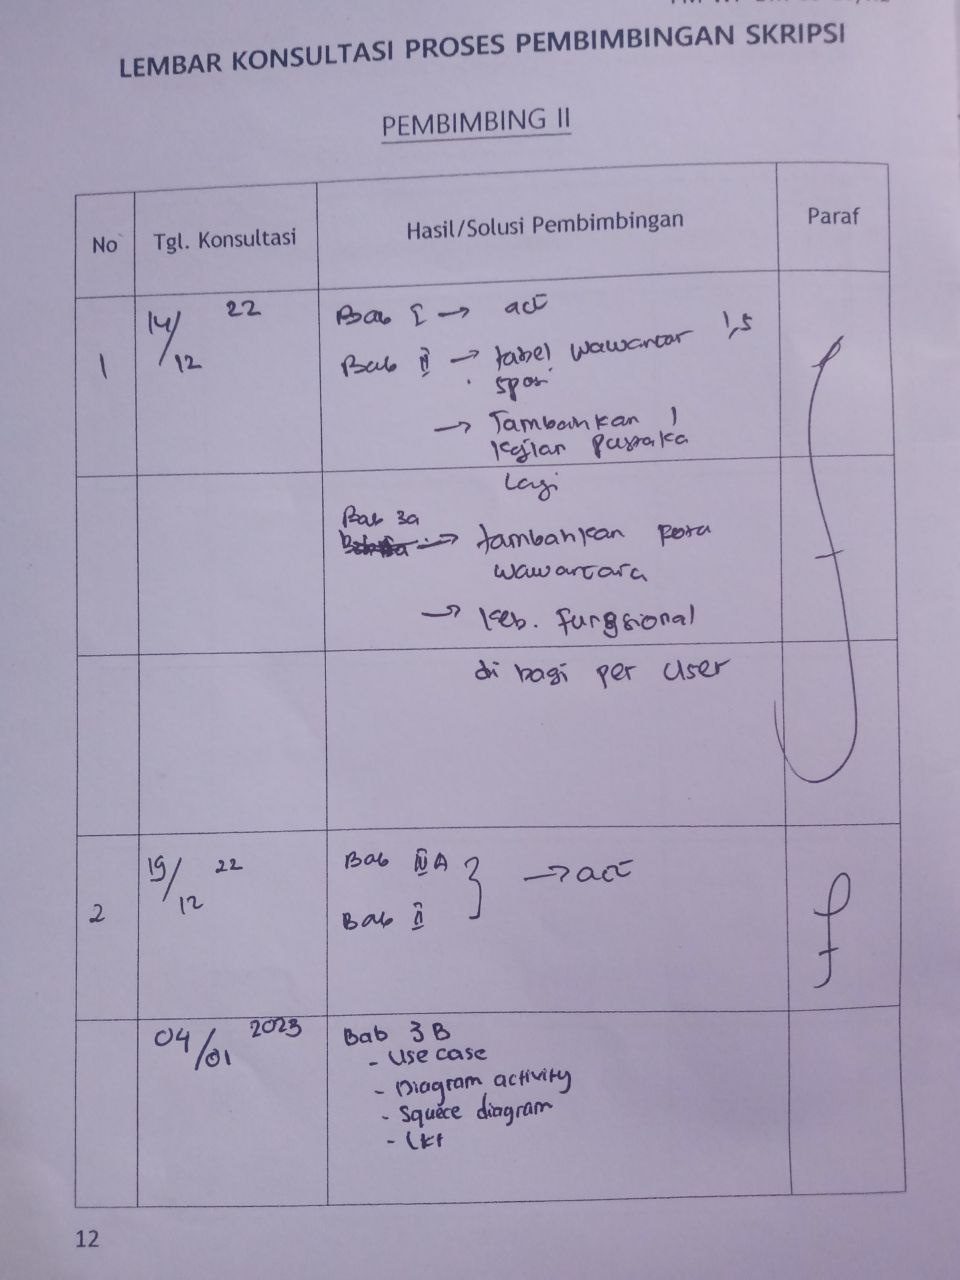 LEMBAR KONSULTASI PROSES PEMBIMBINGAN SKRIPSI
PEMBIMBING II
No Tgl. Konsultasi Hasil/Solusi Pembimbingan Paraf
1 14/12 22 Bab I → acc
Bab II → tabel wawancar 1,5
spasi
→ Tambahkan 1
kajian pustaka
lagi
Bab 3a
→ tambahkan
wawancara
→ keb. fungsional
di bagi per user
2 19/12 22 Bab III A
Bab II
→ acc
04/01 2023 Bab 3 B
- Use case
- Diagram activity
- Squece diagram
12